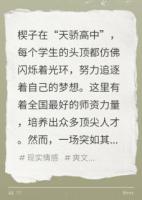 楔子在“天骄高中”，
每个学生的头顶都仿佛
闪烁着光环，努力追逐
着自己的梦想。这里有
着全国最好的师资力量
，培养出众多顶尖人才
。然而，一场突如其...
# 现实情感 # 爽文...